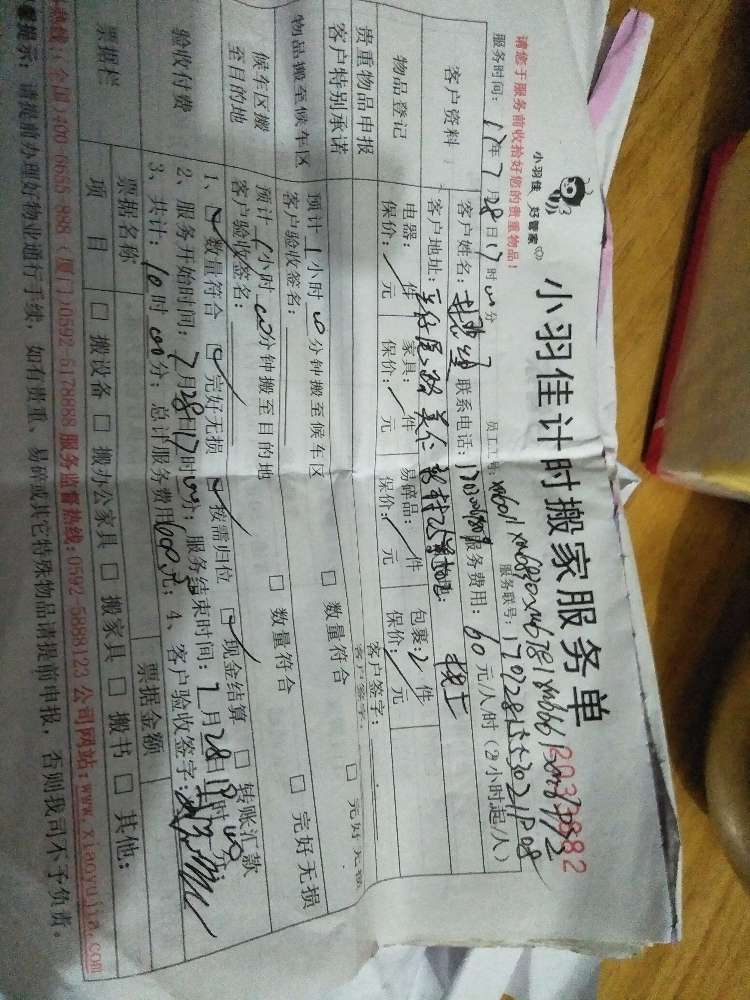 小羽佳 好管家
小羽佳计时搬家服务单
2033882
请您于服务前收拾好您的贵重物品！
员工工号：
服务时间：17年7月28日17时00分
服务联号：
客户资料
客户姓名：
联系电话：
服务费用：60元/人/时（2小时起/人）
客户地址：
物品登记
电器：件 家具：件 易碎品：件 包裹：2件
保价：元 保价：元 保价：元 保价：元
贵重物品申报
客户签字：
客户特别承诺
客户签字：
物品搬至候车区
预计1小时00分钟搬至候车区
□ 数量符合 □ 完好无损
客户验收签名：
候车区搬至目的地
预计1小时00分钟搬至目的地
□ 数量符合 □ 完好无损
客户验收签名：
验收付费
1、□ 数量符合 □ 完好无损 □ 按需归位 □ 现金结算 □ 转账汇款
2、服务开始时间：7月28日17时00分；服务结束时间：7月28日
3、共计：10时00分；总计服务费用600元；4、客户验收签字：
票据栏
票据名称
票据金额
项目
□ 搬设备 □ 搬办公家具 □ 搬家具 □ 搬书 □ 其他：
热线：(全国)400-6655-898 (厦门)0592-6178888 服务监督热线：0592-5888123 公司网站：www.xiaoyujia.com
提示：请提前办理好物业通行手续，如有贵重、易碎或其它特殊物品请提前申报，否则我司不予负责。